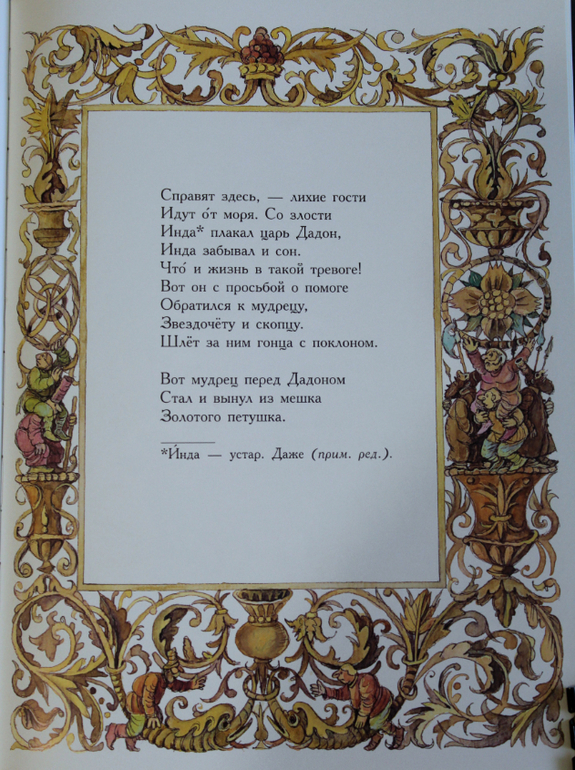 Справят здесь, — лихие гости
Идут о́т моря. Со злости
Инда* плакал царь Дадон,
Инда забывал и сон.
Что́ и жизнь в такой тревоге!
Вот он с просьбой о помоге
Обратился к мудрецу,
Звездочёту и скопцу.
Шлёт за ним гонца с поклоном.
Вот мудрец перед Дадоном
Стал и вынул из мешка
Золотого петушка.
*И́нда — устар. Даже (прим. ред.).